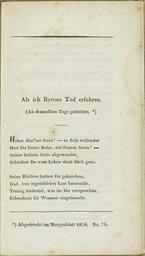 Als ich Byrons Tod erfahren.
(An demselben Tage gedichtet. *)
Hoher düst'rer Geist! — so früh vollendet
Hast Du Deine Bahn, auf diesem Stern? —
Seiner heitern Seite abgewendet,
Schiedest Du vom Leben doch Dich gern.
Seine Blüthen hattest Du gebrochen,
Und, von jugendlicher Lust berauscht,
Trotzig fordernd, was sie Dir versprochen,
Ueberdruß für Wonnen eingetauscht.
*) Abgedruckt im Morgenblatt 1824, No. 75.